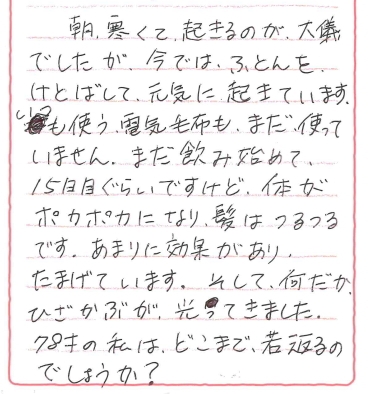 朝、寒くて、起きるのが、大儀
でしたが、今では、ふとんを、
けとばして、元気に、起きています。
いつも使う、電気毛布も、まだ、使って
いません。まだ飲み始めて、
15日目ぐらいですけど、体が
ポカポカになり、髪はつるつる
です。あまりに効果があり、
たまげています。そして、何だか、
ひざかぶが、光ってきました。
78才の私は、どこまで、若返るの
でしょうか?